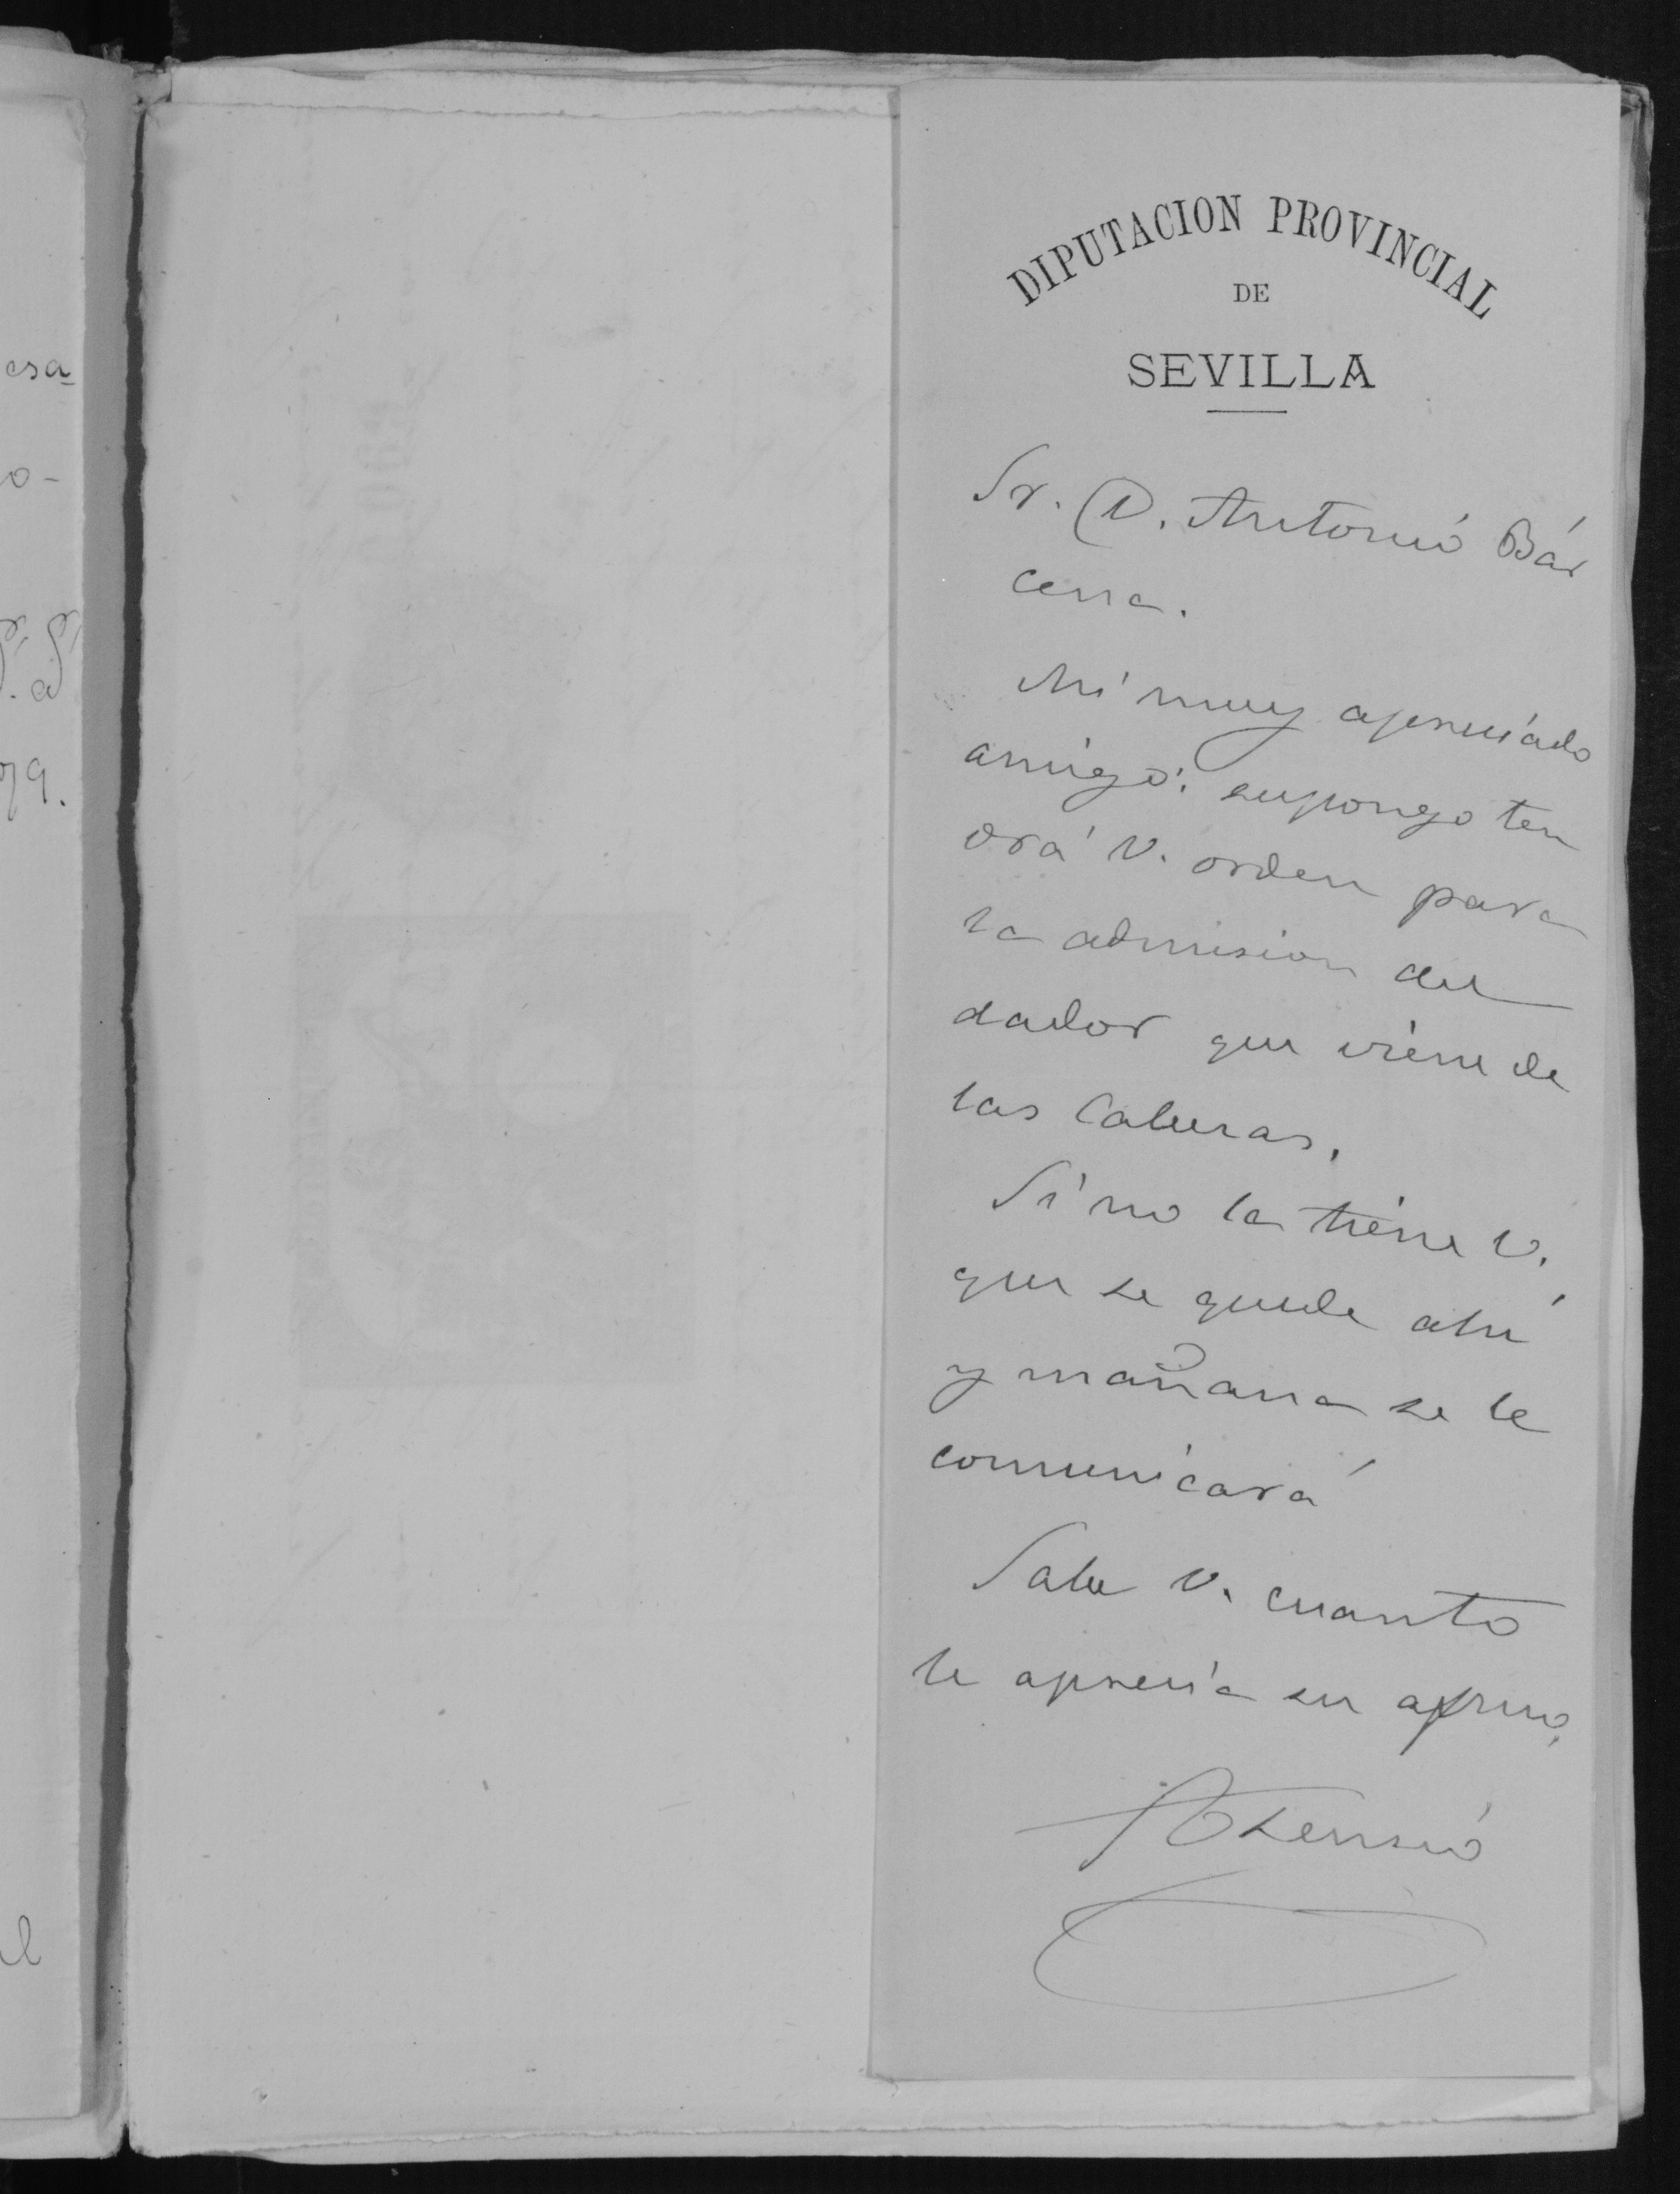 esa
o-
79.
DIPUTACION PROVINCIAL
DE
SEVILLA
Sr. D. Antonio Bár
cena.
Mi muy apreciado
amigo: supongo ten
drá V. orden para
la admision del
dador que viene de
las Caberas.
Si no la tiene V.
que se quede ahí
y mañana se le
comunicará
Sabe V. cuanto
le aprecia su afmo,
Asensio